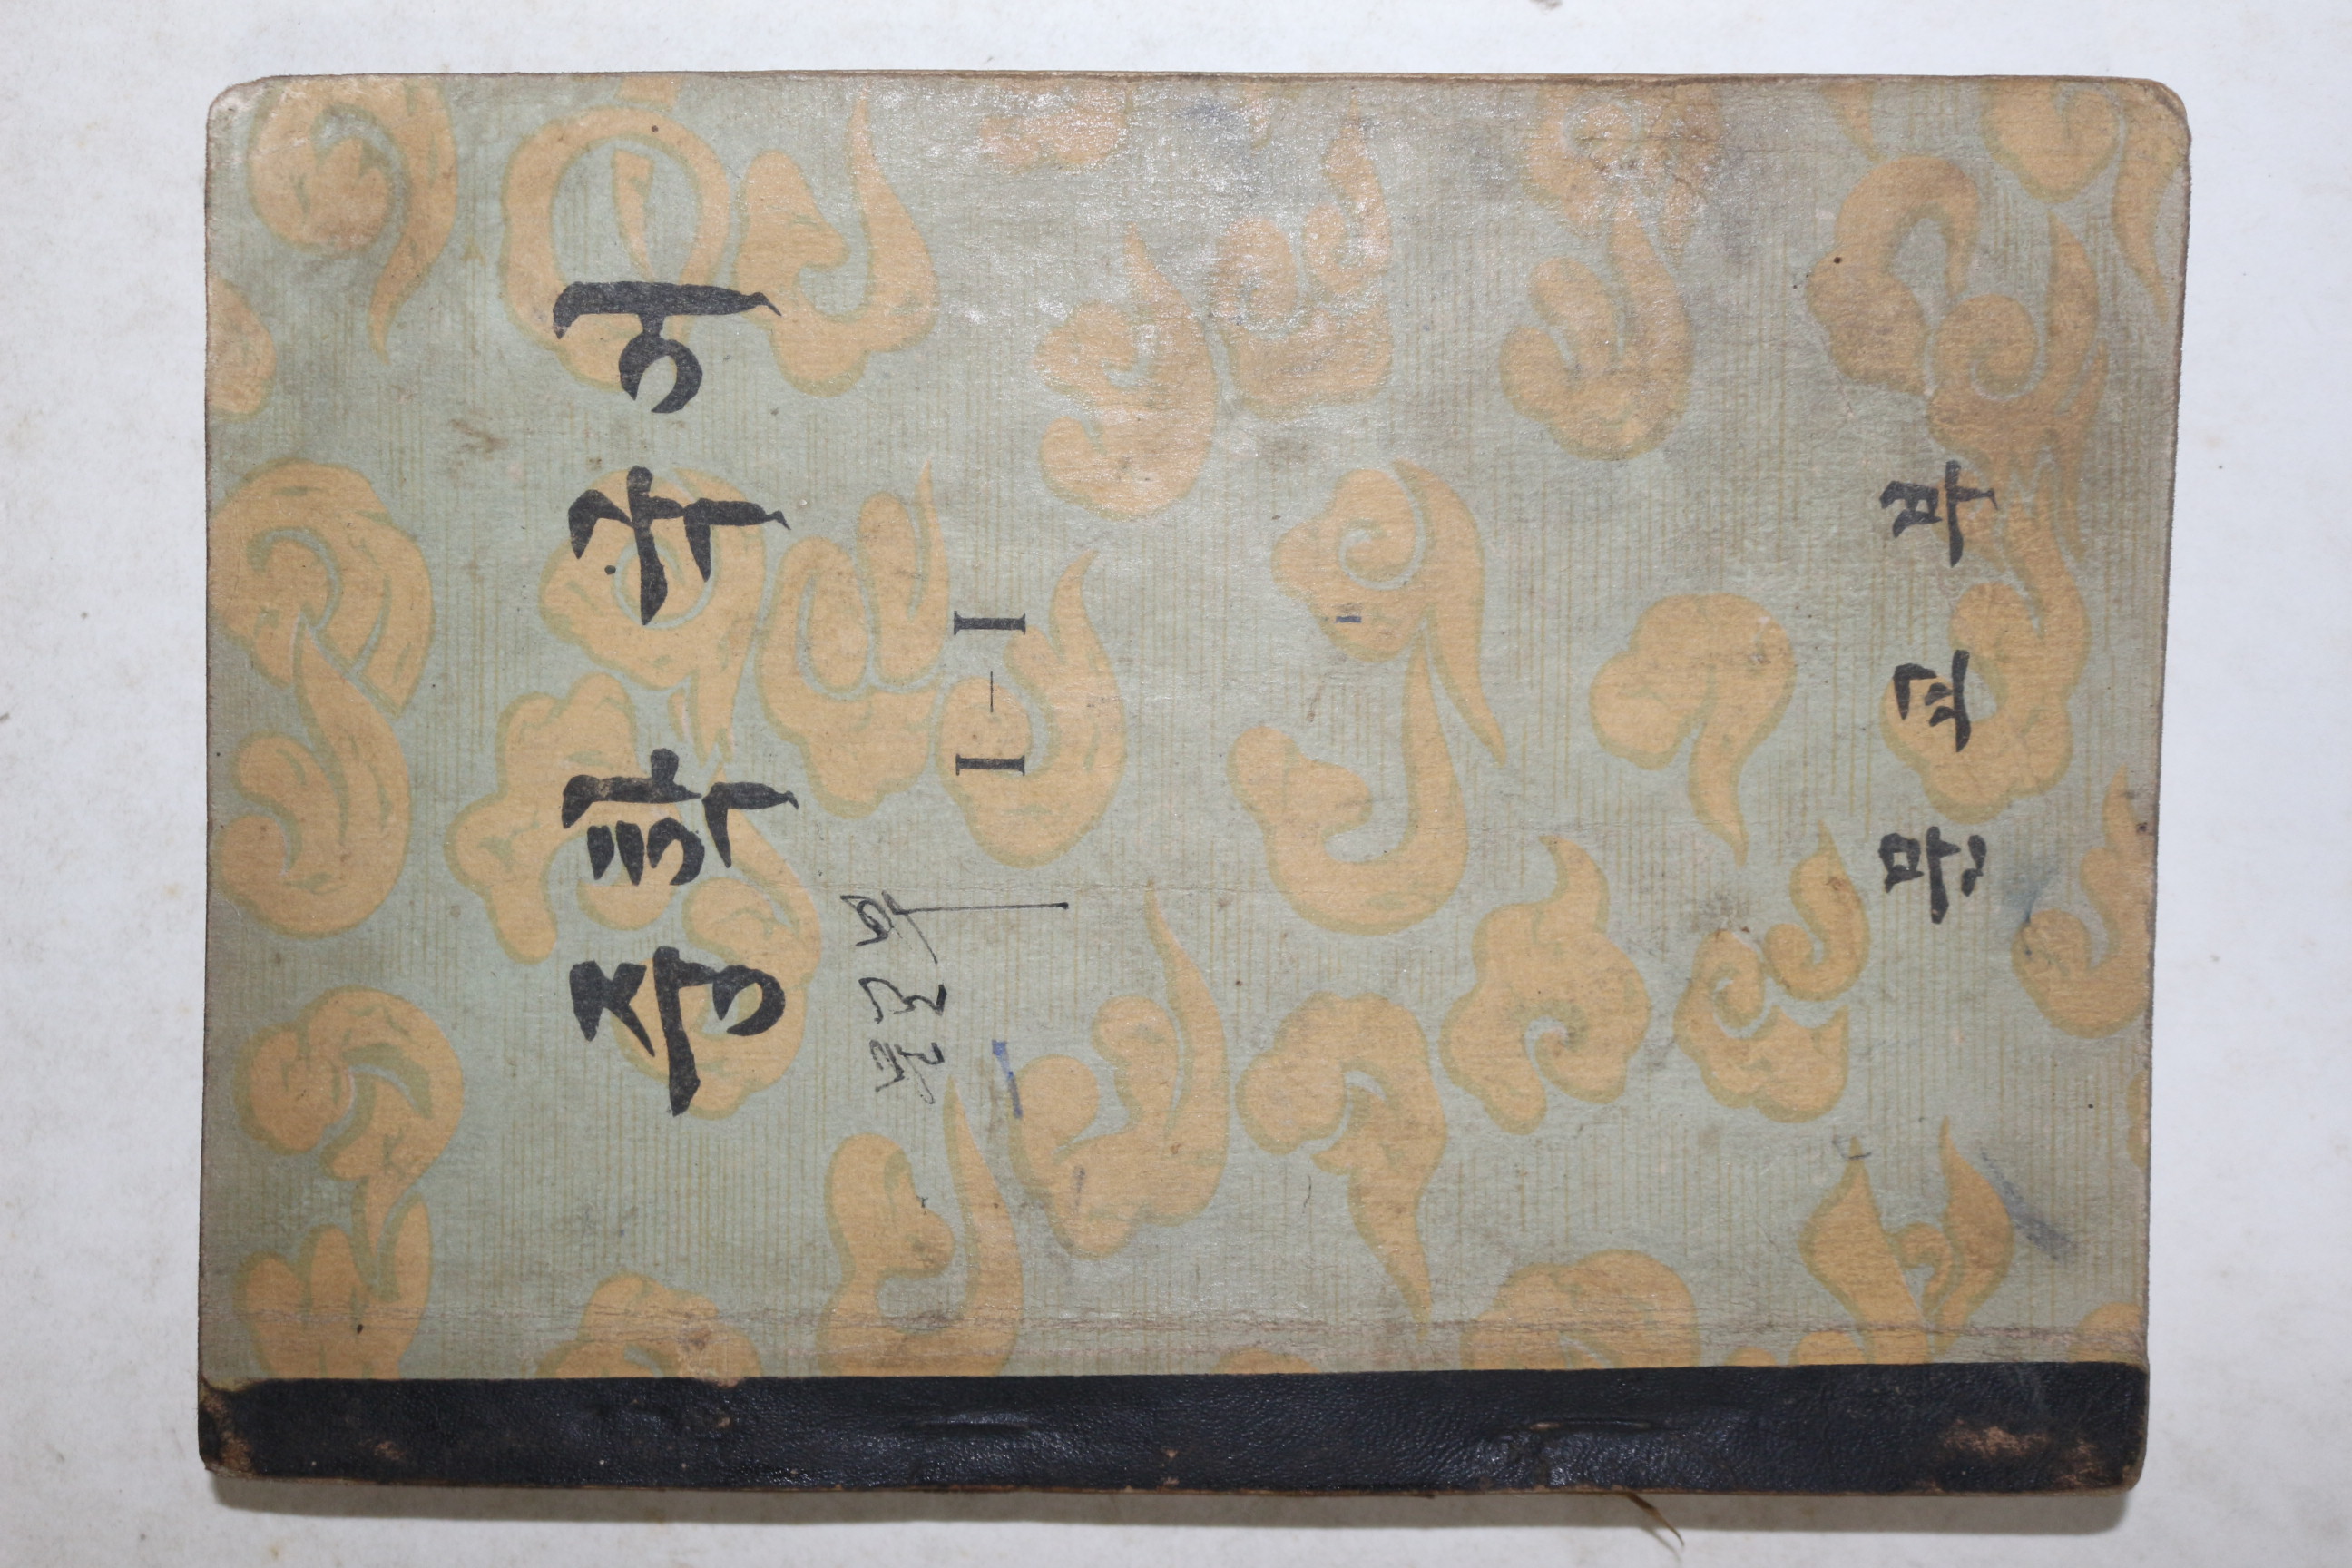 중학 국어
문교부
I－I
문교부